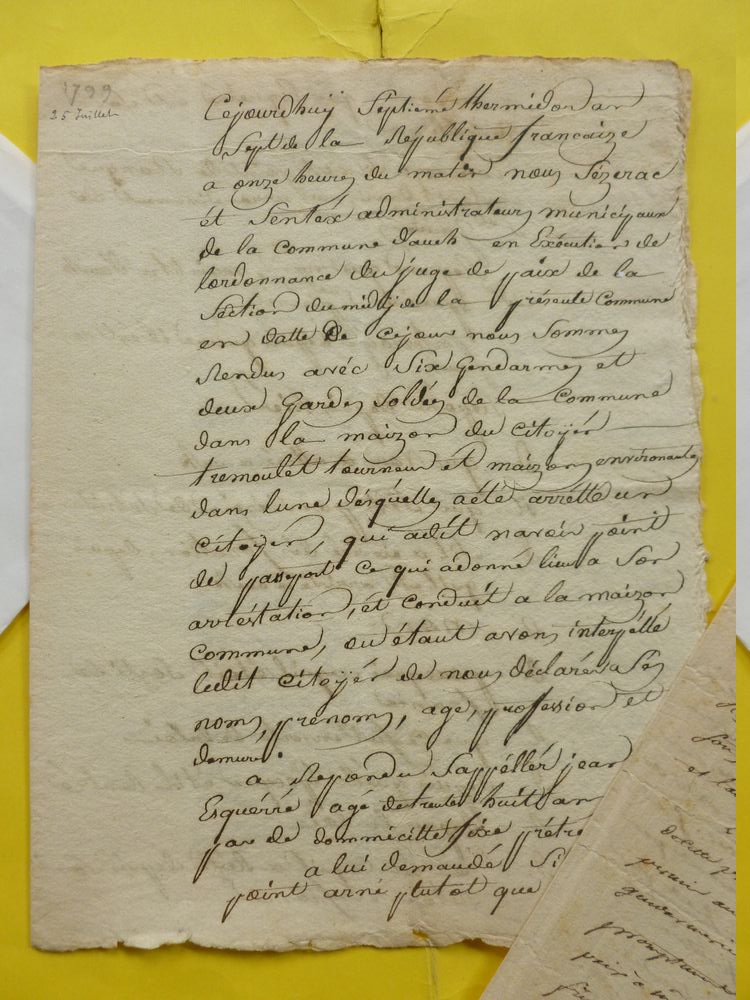 1799
25 Juillet
Cejourdhuy Septieme thermidor an
Sept de la Republique francaize
a onze heures du matin nous Sézerac
ét Sentéx administrateurs municipaux
de la Commune d'auch en Exécution de
lordonnance du juge de paix de la
Section du midy de la présente Commune
en datte De Cejour nous Sommes
Rendus avéc Six Gendarmes et
deux Gardes Soldés de la Commune
dans la maizon du Citoyén
tremoulét tourneur ét maizons environantes
dans lune désquélles aété arretté un
Citoyen, qui adit navoir point
de passeport Ce qui adonné lieu a Son
arréstation, ét conduit a la maizon
Commune, ou étant avons interpéllé
ledit Citoyén de nous déclarér Ses
noms, prénoms, age, proféssion et
demure.
a Repondu Sappéllér jean
Esquérré agé detrente huit an
pas de dommicille fixe prétre
a lui demandé Si
point arné plutot que
et la